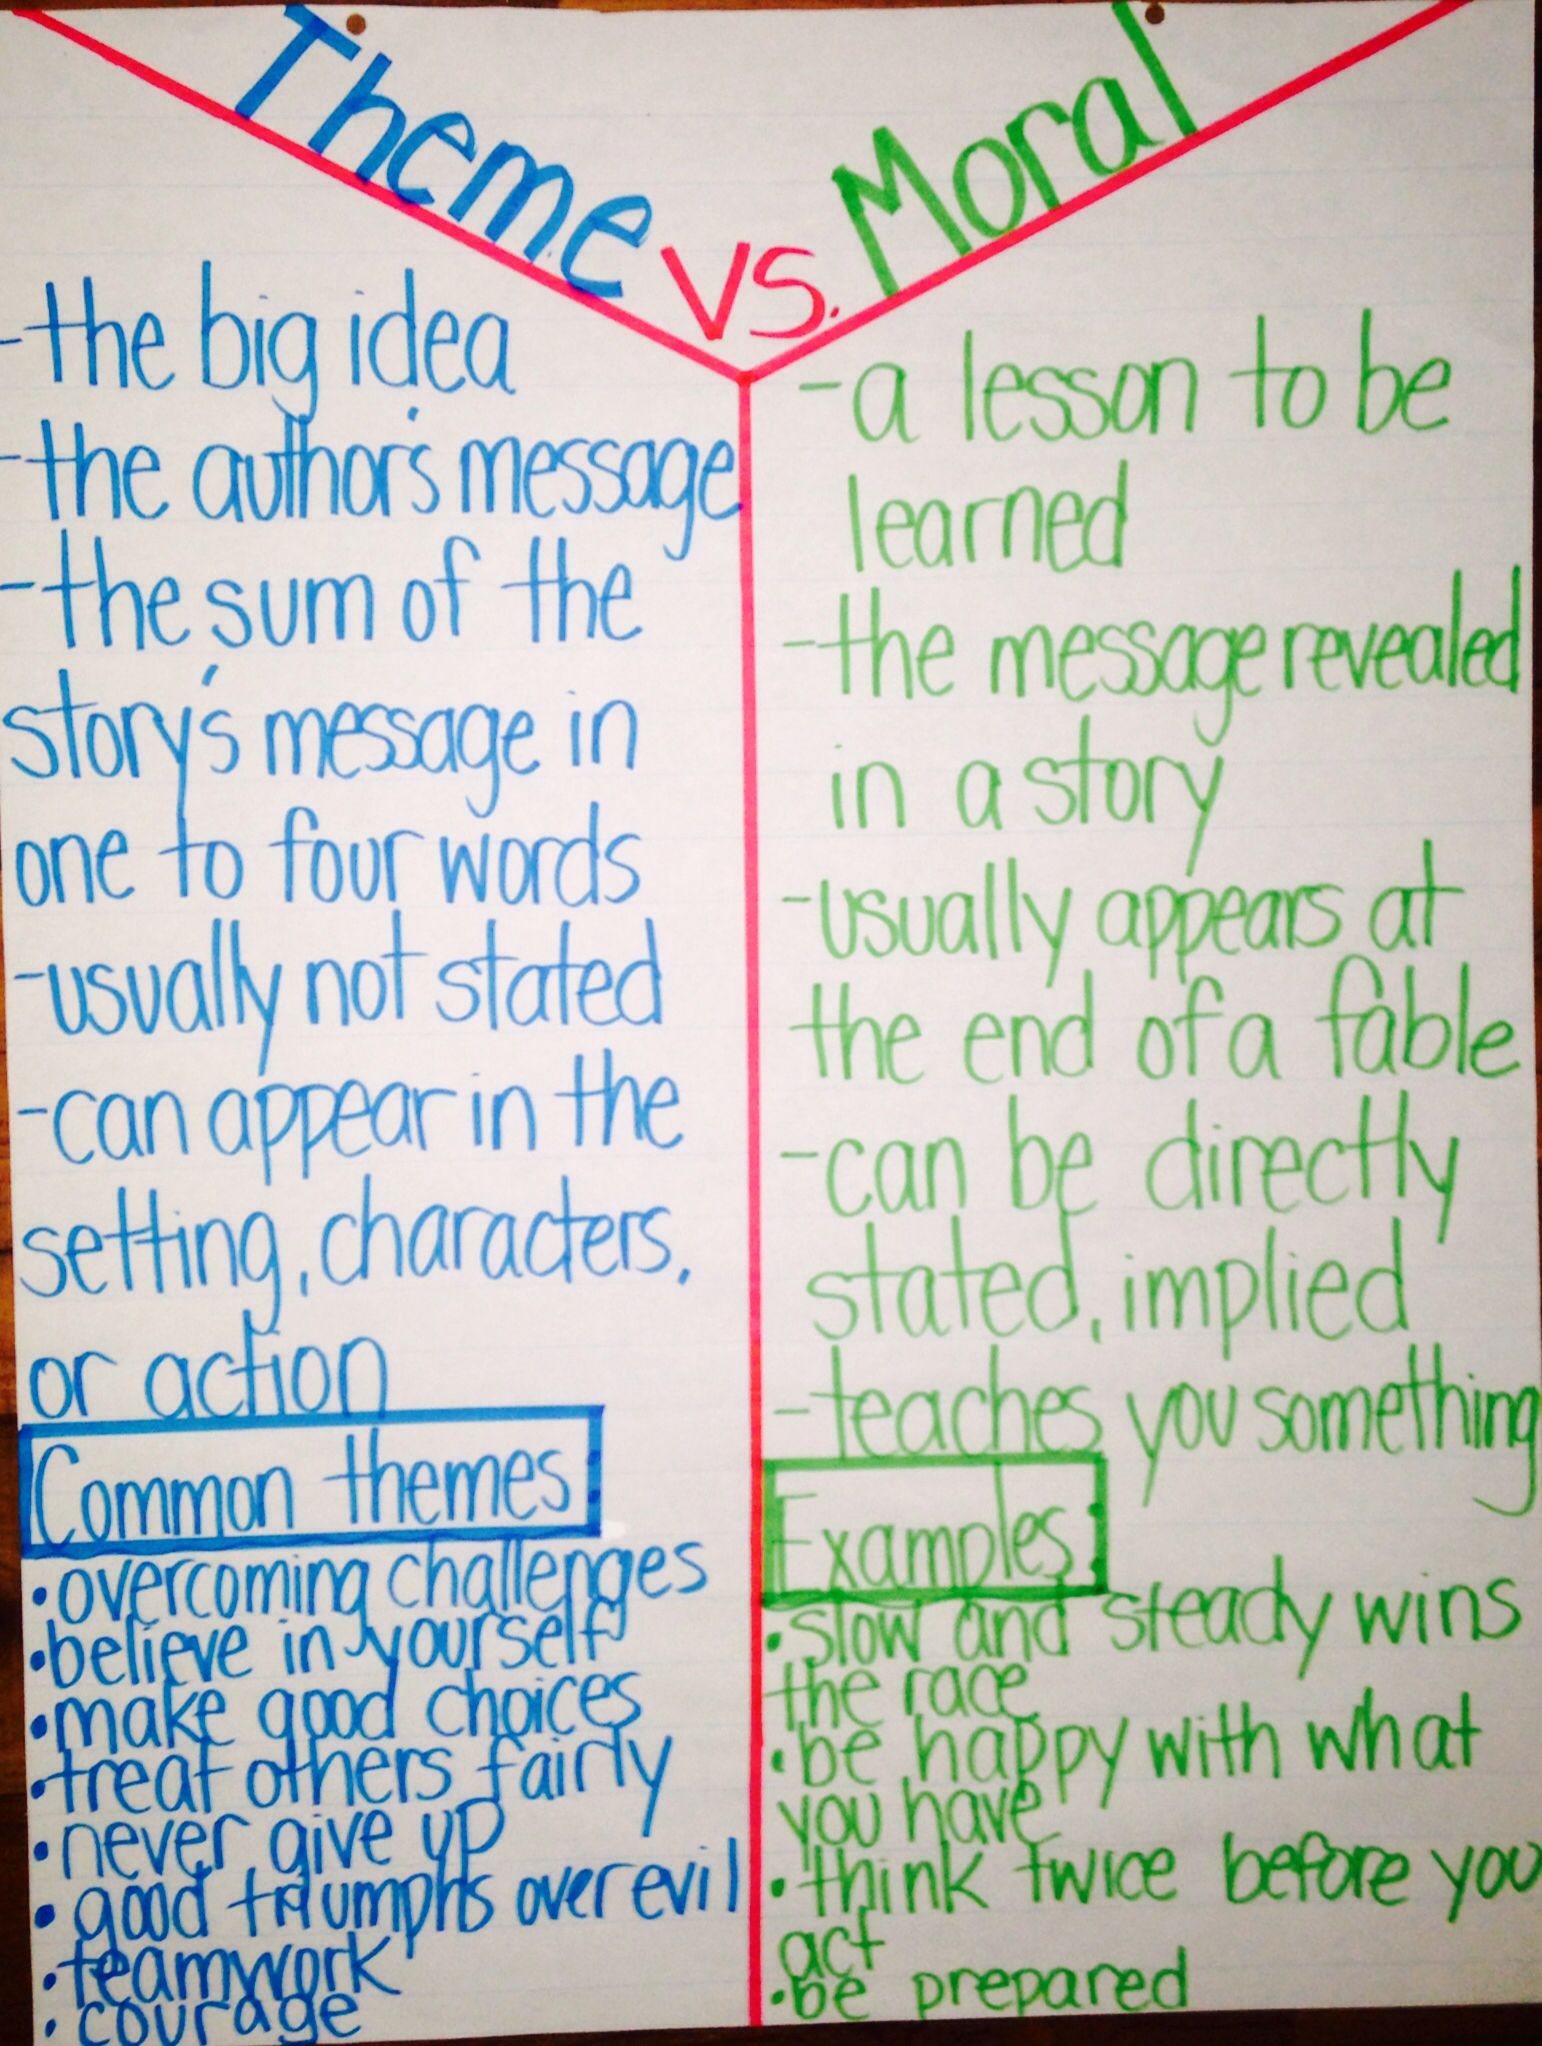 Theme vs. Moral
-the big idea
-the author's message
-the sum of the
story's message in
one to four words
-usually not stated
-can appear in the
setting, characters,
or action
Common themes:
•overcoming challenges
•believe in yourself
•make good choices
•treat others fairly
•never give up
•good triumphs over evil
•teamwork
•courage
-a lesson to be
learned
-the message revealed
in a story
-usually appears at
the end of a fable
-can be directly
stated, implied
-teaches you something
Examples:
•slow and steady wins
the race
•be happy with what
you have
•think twice before you
act
•be prepared